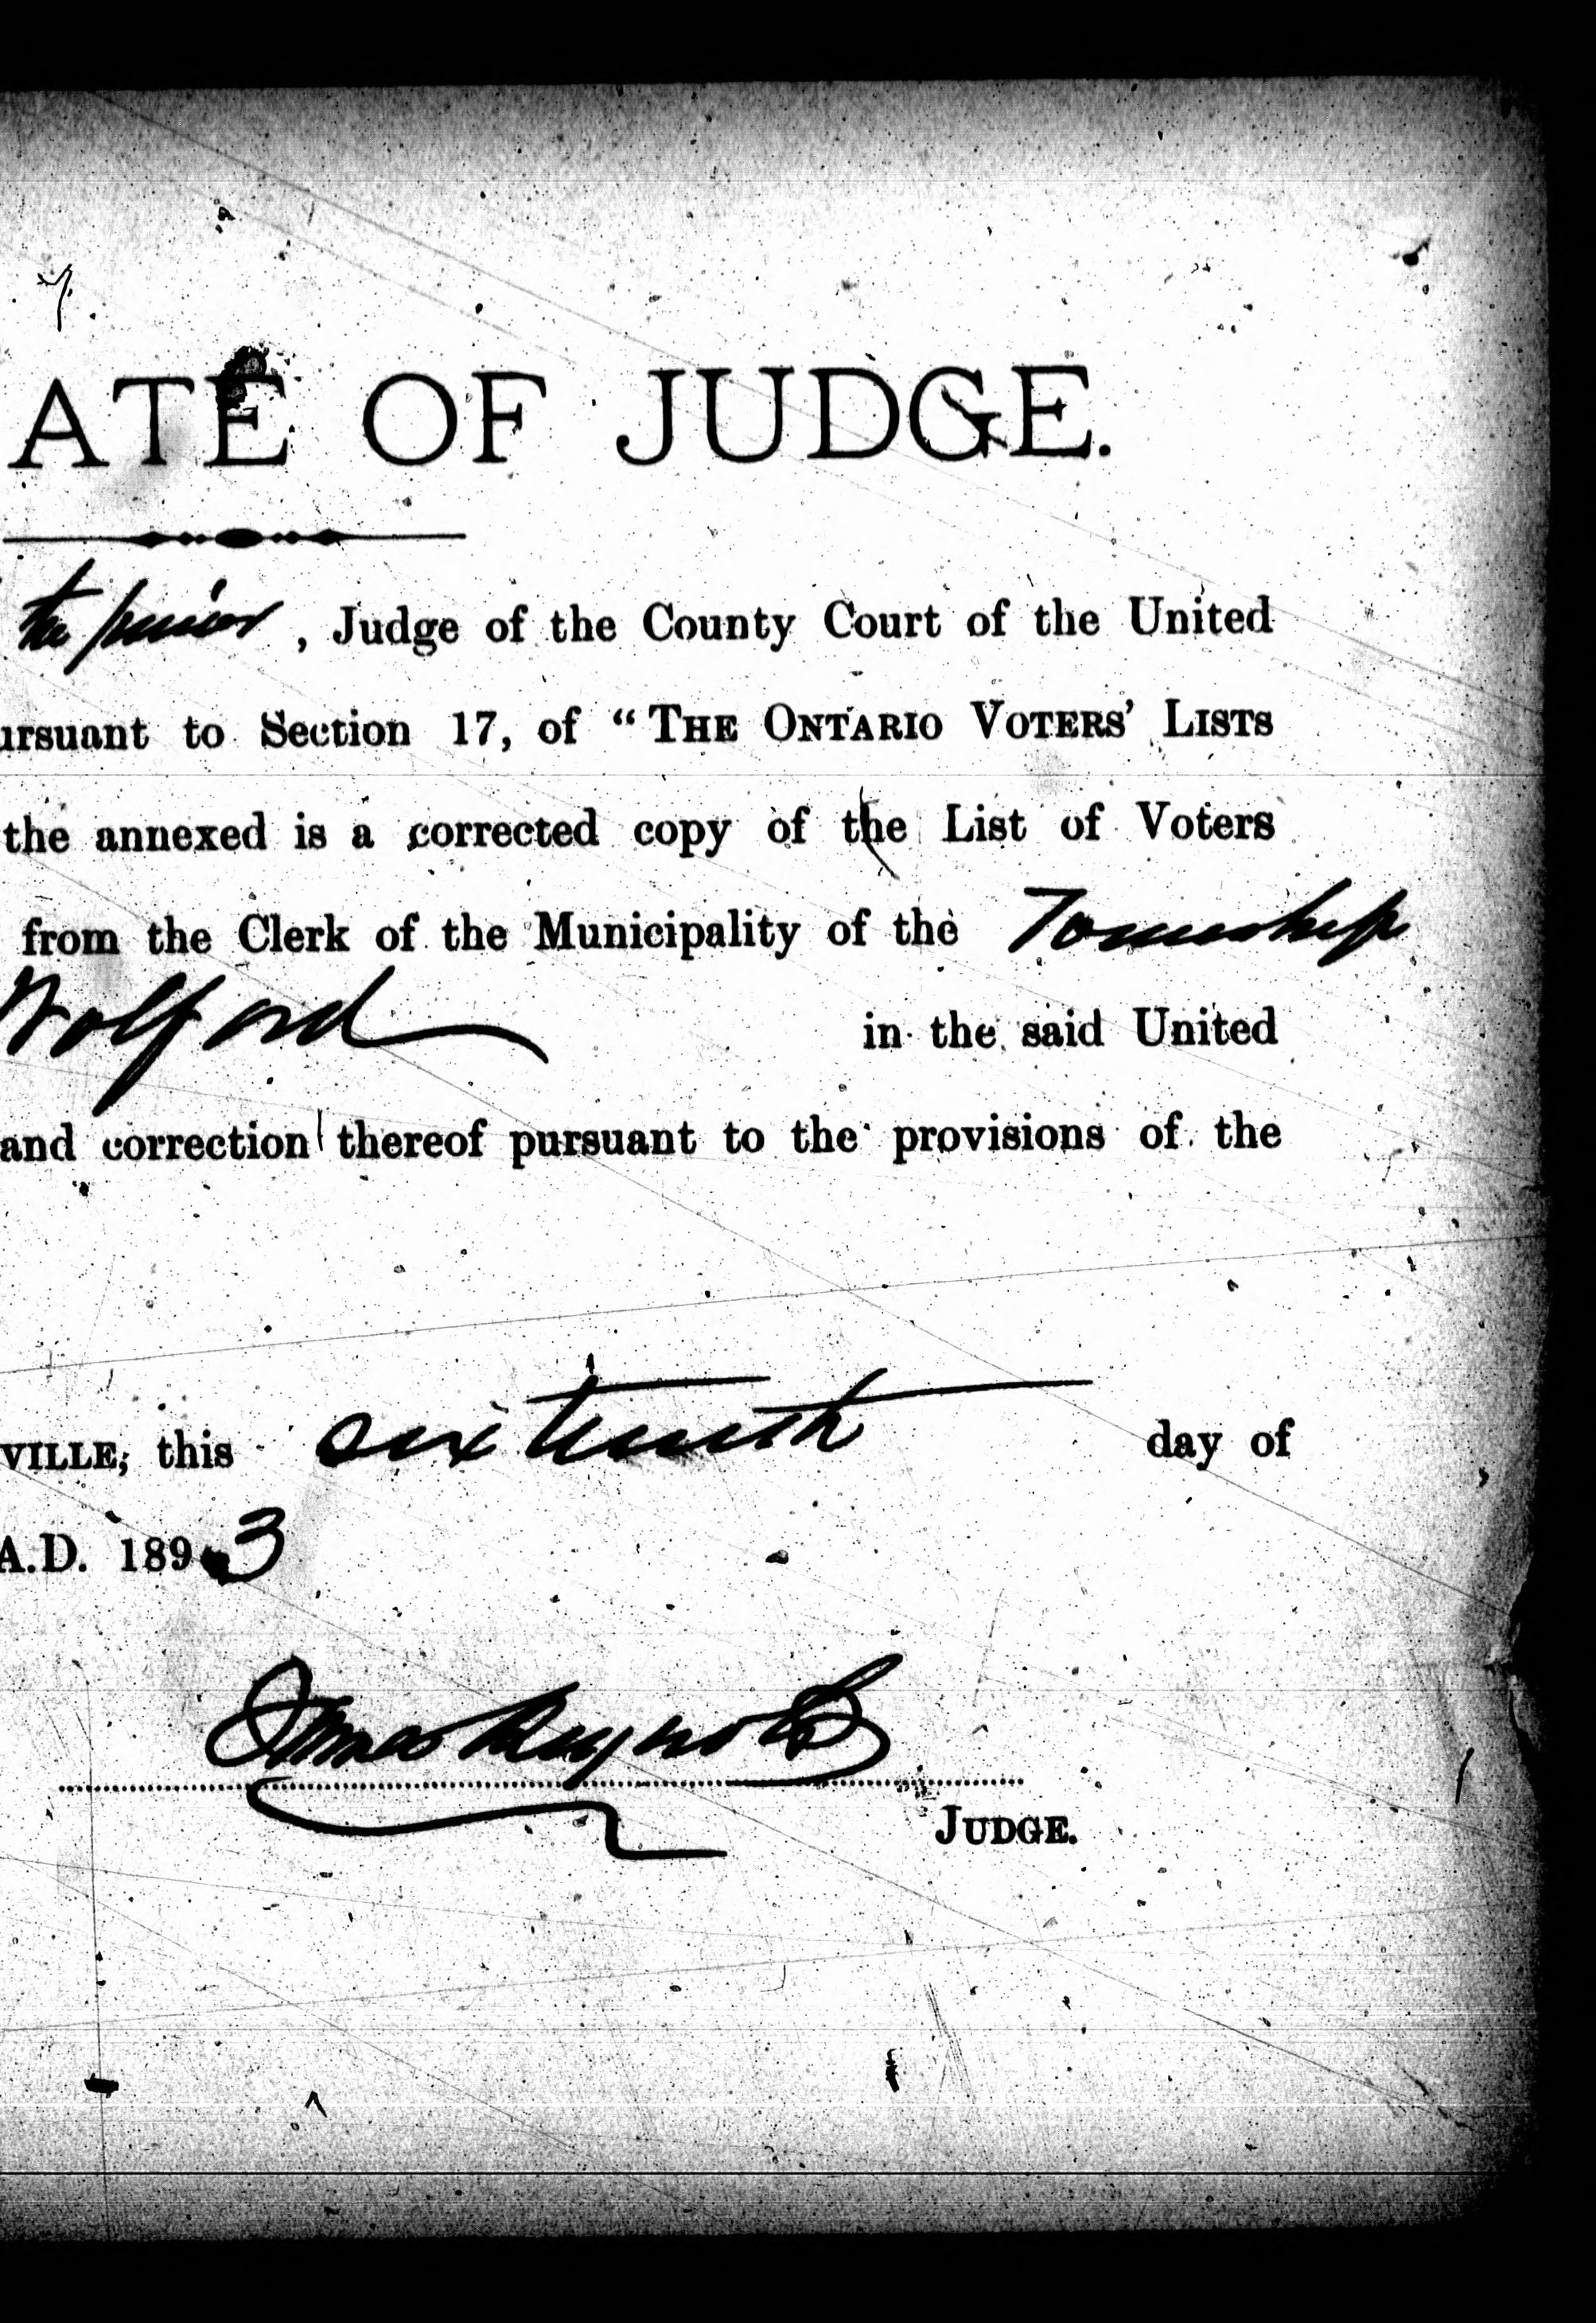 ATE OF JUDGE.
the junior, Judge of the County Court of the United
ursuant to Section 17, of "THE ONTARIO VOTERS' LISTS
the annexed is a corrected copy of the List of Voters
from the Clerk of the Municipality of the Township
Wolford in the said United
and correction thereof pursuant to the provisions of the
VILLE, this sixteenth day of
A.D. 1893
James Reynolds
JUDGE.